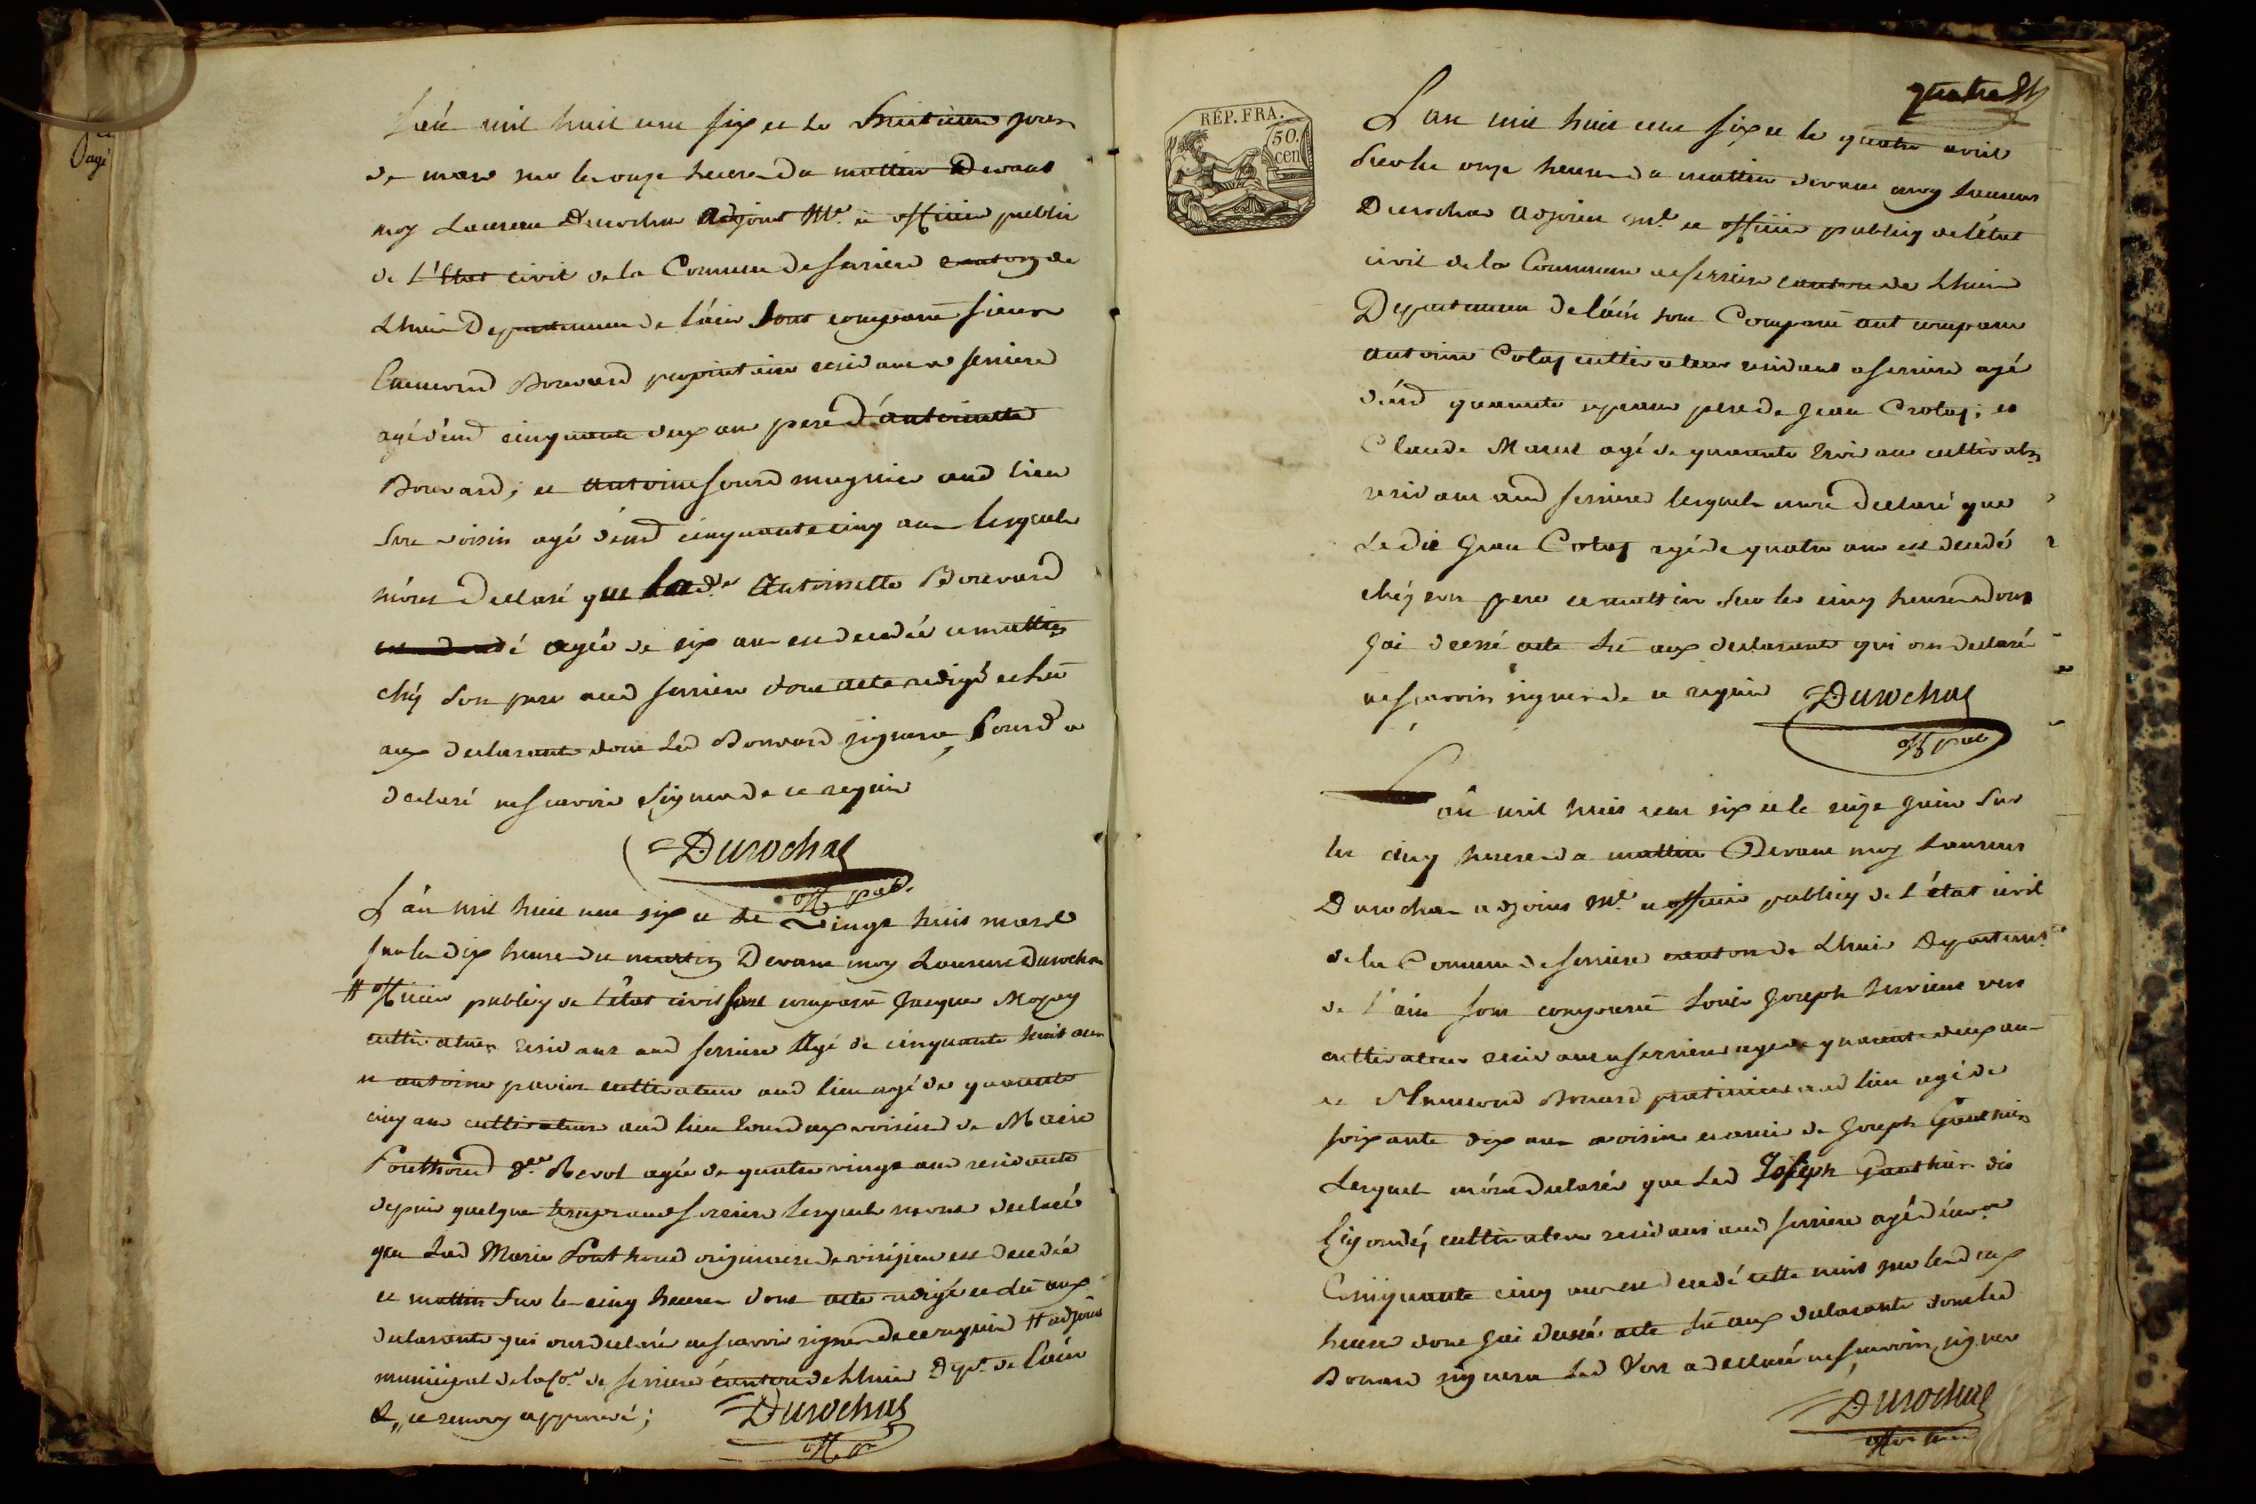 L'an mil huit cent six et le huitieme jour
de mars sur les onze heures du mattin Devant
moy Laurent Durochat Adjoint M.al et officier public
de L'Etat civil de la Commune de serriere canton de
Lhuis Departement de l'ain sont comparu sieur
Bouvard proprietaire residant a serriere
agé d'end cinquante deux ans pere d'antoinette
Bouvard ; et antoine sourd mugnier aud lieu
son voisin agé d'end cinquante cinq ans lesquels
m'ont Declaré que lad.e Antoinette Bouvard
agée de six ans est decedée ce mattin
chéz son pere aud serriere dont acte redigé et lû
aux declarants dont led Bouvard signera, sourd a
declaré ne scavoir signer de ce requis
Durochat
off pub.
L'an mil huit cent six et le vingt huit mars
sur les dix heures du mattin Devant moy Laurent Durochat
# officier publiq de l'état civil sont comparû Jacques
cultivateur residant aud serriere agé de cinquante huit ans
et antoine cultivateur aud lieu agé de quarante
cinq ans cultivateur aud lieu tous deux voisins de Marie
Ponthoud v.ve Revol agée de quatre vingt ans residante
depuis quelque temps aud serriere lesquels m'ont declaré
que lad Marie Ponthoud originaire de est decedée
ce mattin sur les cinq heures dont acte redigé et lû aux
declarants qui ont declaré ne scavoir signer de ce requis # adjoint
municipal de la co.ne de serriere canton de Lhuis Dep.t de l'ain
ce renvoy approuvé ;
Durochat
off p
RÉP. FRA.
50.
cen
quatre
L'an mil huit cent six et le quatre avril
sur les onze heures du mattin devant moy Laurent
Durochat adjoint m.l et officier publiq de l'état
civil de la Commune de serriere canton de Lhuis
Departement de l'ain sont Comparû ont comparu
antoine Crotas cultivateur residant a serriere agé
d'end quarante sept ans pere de Jean Crotas ; et
Claude agé de quarante trois ans cultivat.r
residant aud serriere lesquels m'ont declaré que
Ledit Jean Crotas agé de quatre ans est decedé
chéz son pere ce mattin sur les cinq heures dont
J'ai dressé acte lû aux declarants qui ont declaré
ne scavoir signer de ce requis
Durochat
off pub
L'an mil huit cent six et le seize juin sur
les cinq heures du mattin Devant moy Laurent
Durochat adjoint m.l et officier publiq de l'état civil
de la Commune de serriere canton de Lhuis Departem.t
de l'ain sont comparû Louis Joseph
cultivateur residant a serriere agé de quarante deux ans
et Bouvard aud lieu agé de
soixante dix ans voisin et ami de Joseph Gauthier
Lesquels m'ont declaré que led Joseph Gauthier dit
cultivateur residant aud serriere agé d'env.on
Cinquante cinq ans est decedé cette nuit sur les deux
heures dont j'ai dressé acte lû aux declarants dont led
Bouvard signera led a declaré ne scavoir signer
Durochat